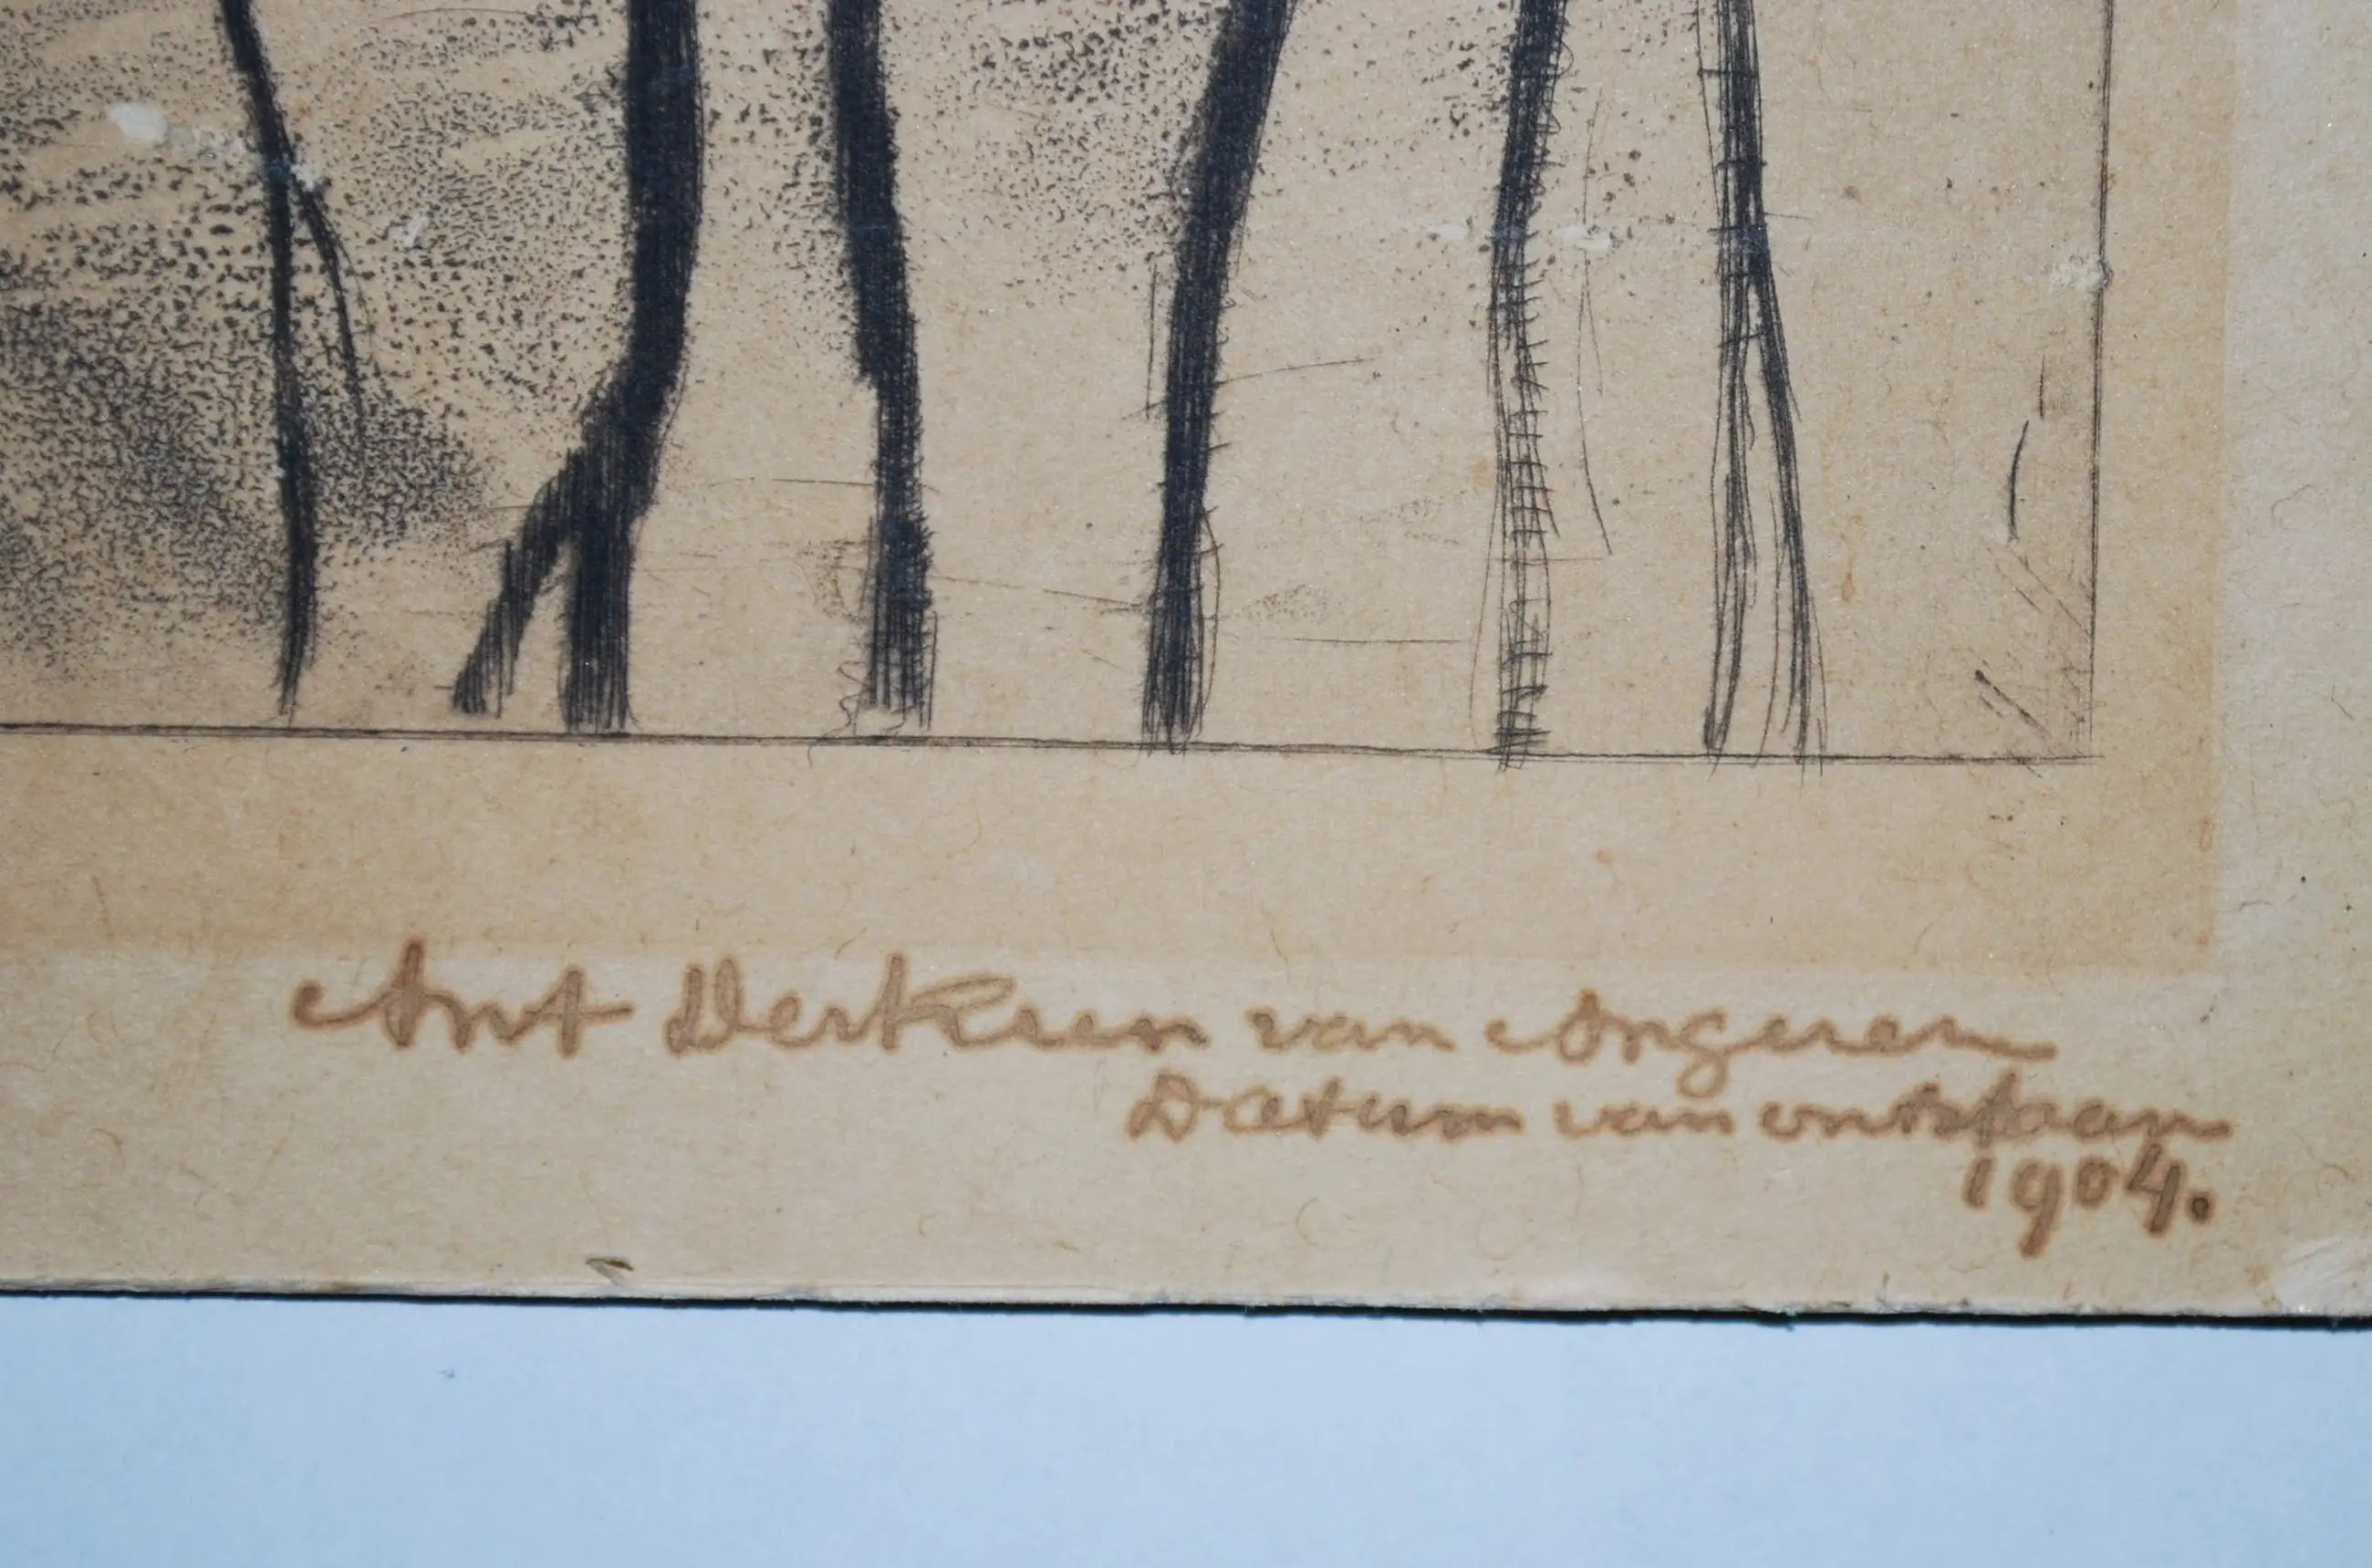 Ant Derkzen van Angeren
Datum van ontstaan
1904.